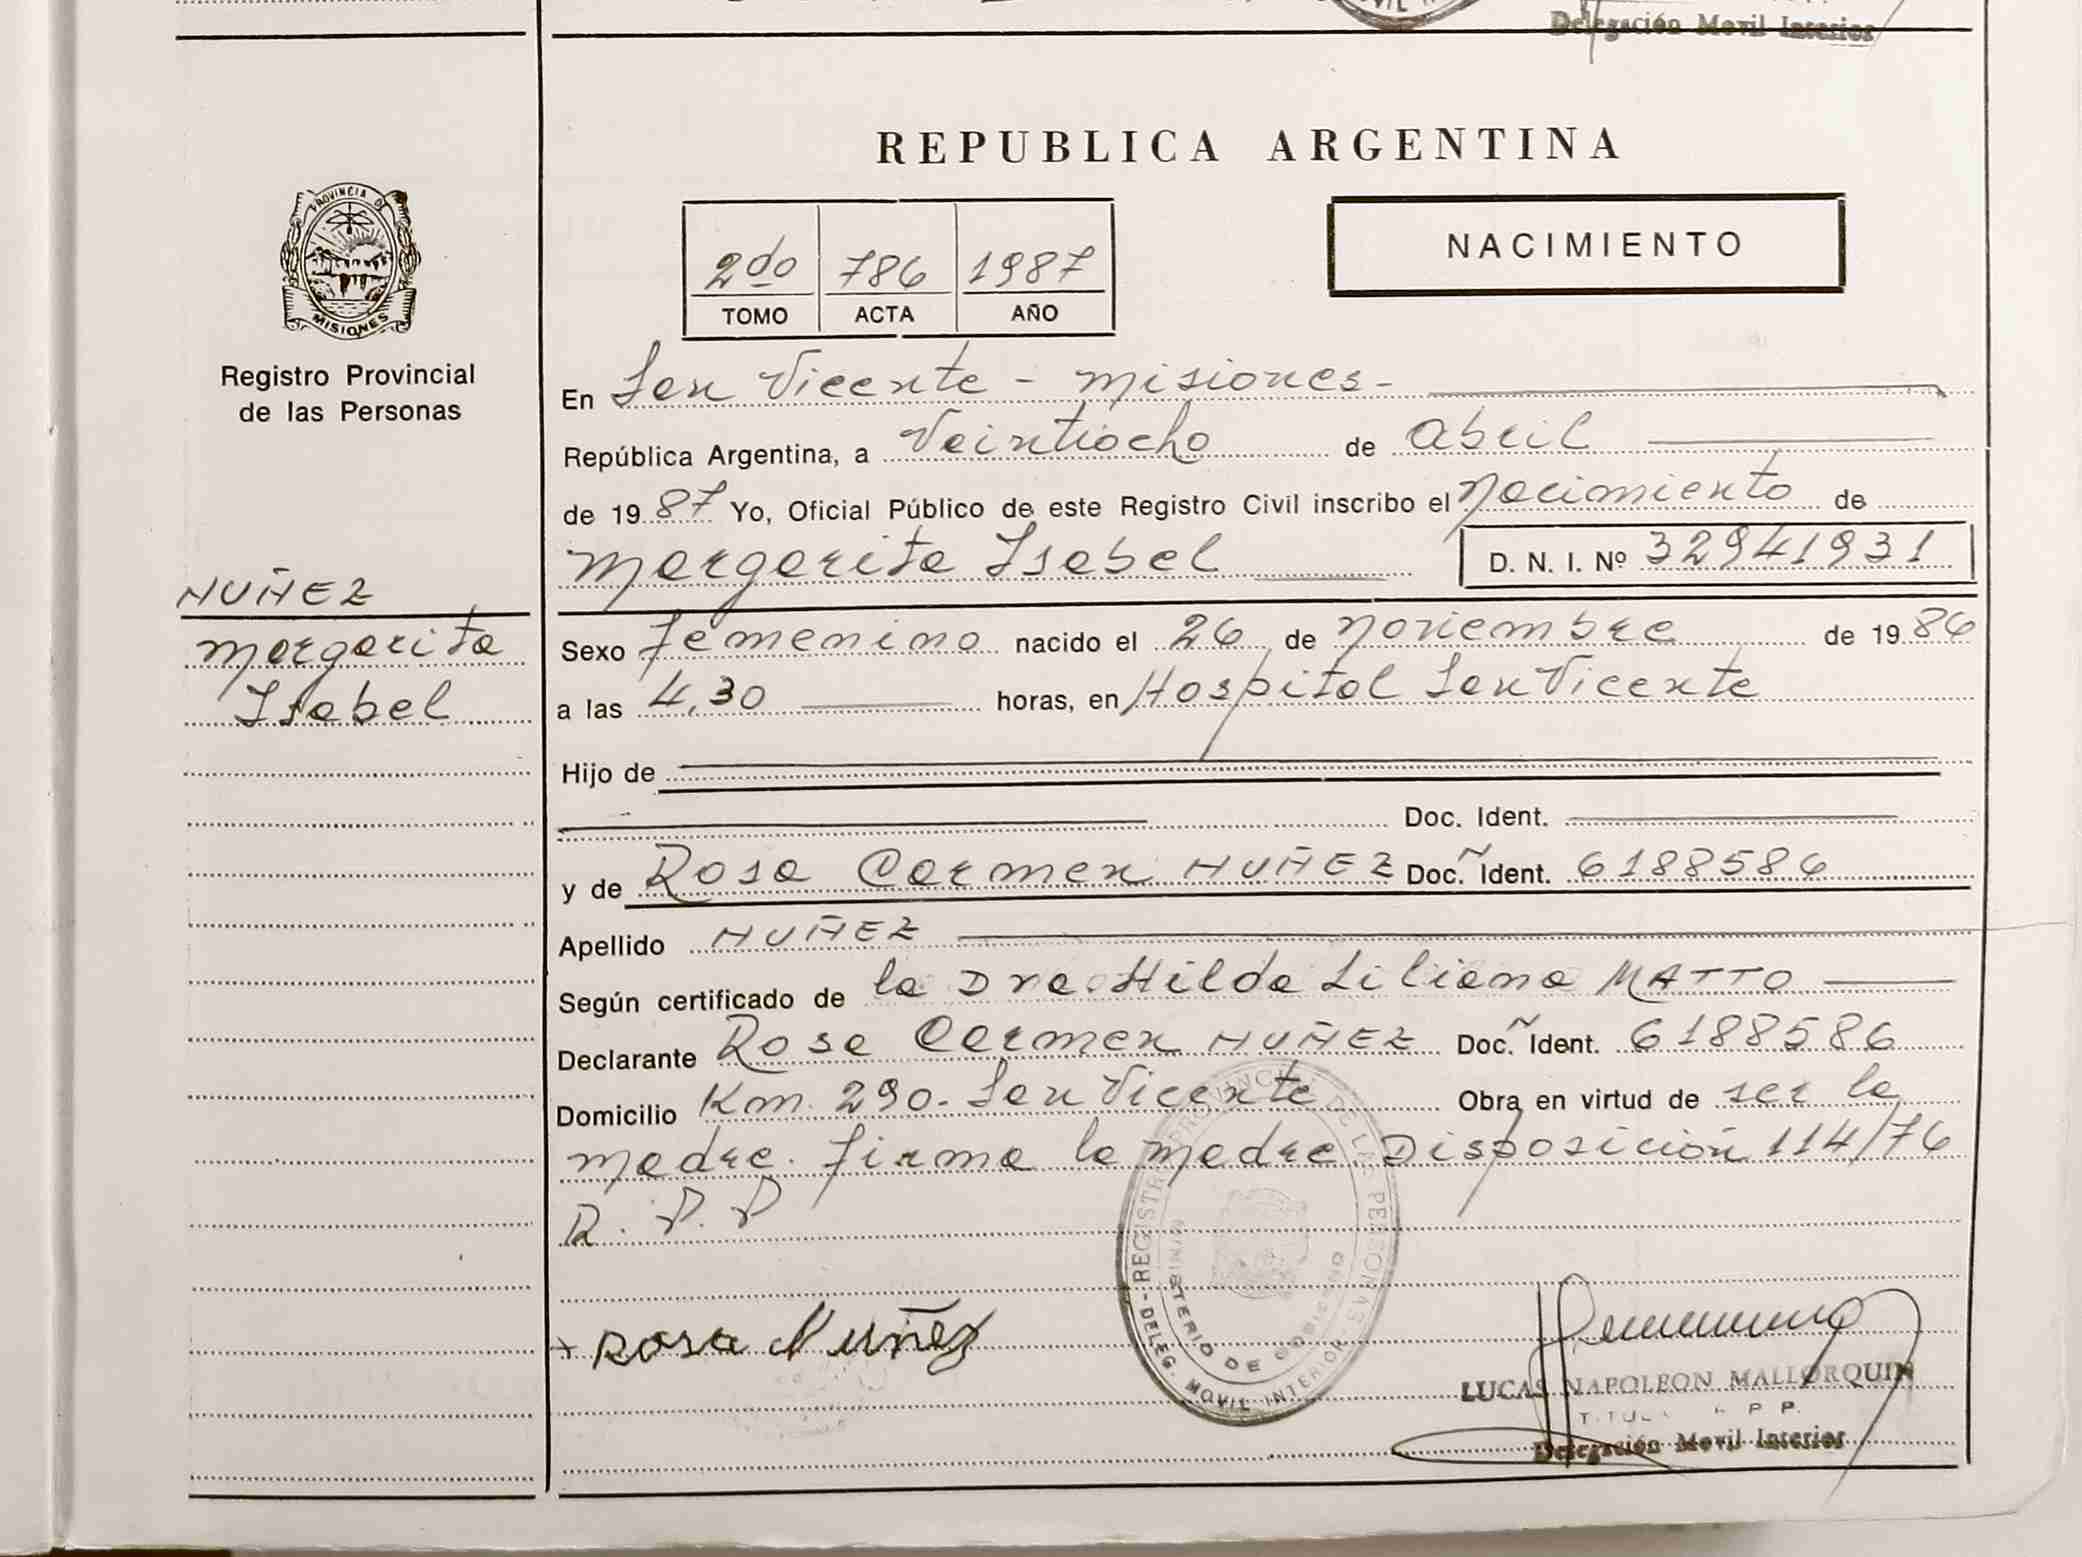 Delegación Movil Interior
REPUBLICA ARGENTINA
PROVINCIA DE
MISIONES
Registro Provincial
de las Personas
NUÑEZ
Margarita
Isabel
2do 786 1987
TOMO ACTA AÑO
NACIMIENTO
En San Vicente - Misiones-
República Argentina, a Veintiocho de abril
de 1987 Yo, Oficial Público de este Registro Civil inscribo el Nacimiento de
Margarita Isabel D. N. I. Nº 32941931
Sexo femenino nacido el 26 de Noviembre de 1986
a las 4,30 horas, en Hospital San Vicente
Hijo de
Doc. Ident.
y de Rosa Carmen NUÑEZ Doc. Ident. 6188586
Apellido NUÑEZ
Según certificado de la Dra. Hilda Liliana MATTO
Declarante Rosa Carmen NUÑEZ Doc. Ident. 6188586
Domicilio Km. 290. San Vicente Obra en virtud de ser la
madre. firma la madre Disposición 114/76
R. P. P
REGISTRO PROVINCIAL DE LAS PERSONAS
MINISTERIO DE GOBIERNO
- DELEG. MOVIL INTERIOR
+ Rosa Nuñez
LUCAS NAPOLEON MALLORQUIN
Delegación Movil Interior